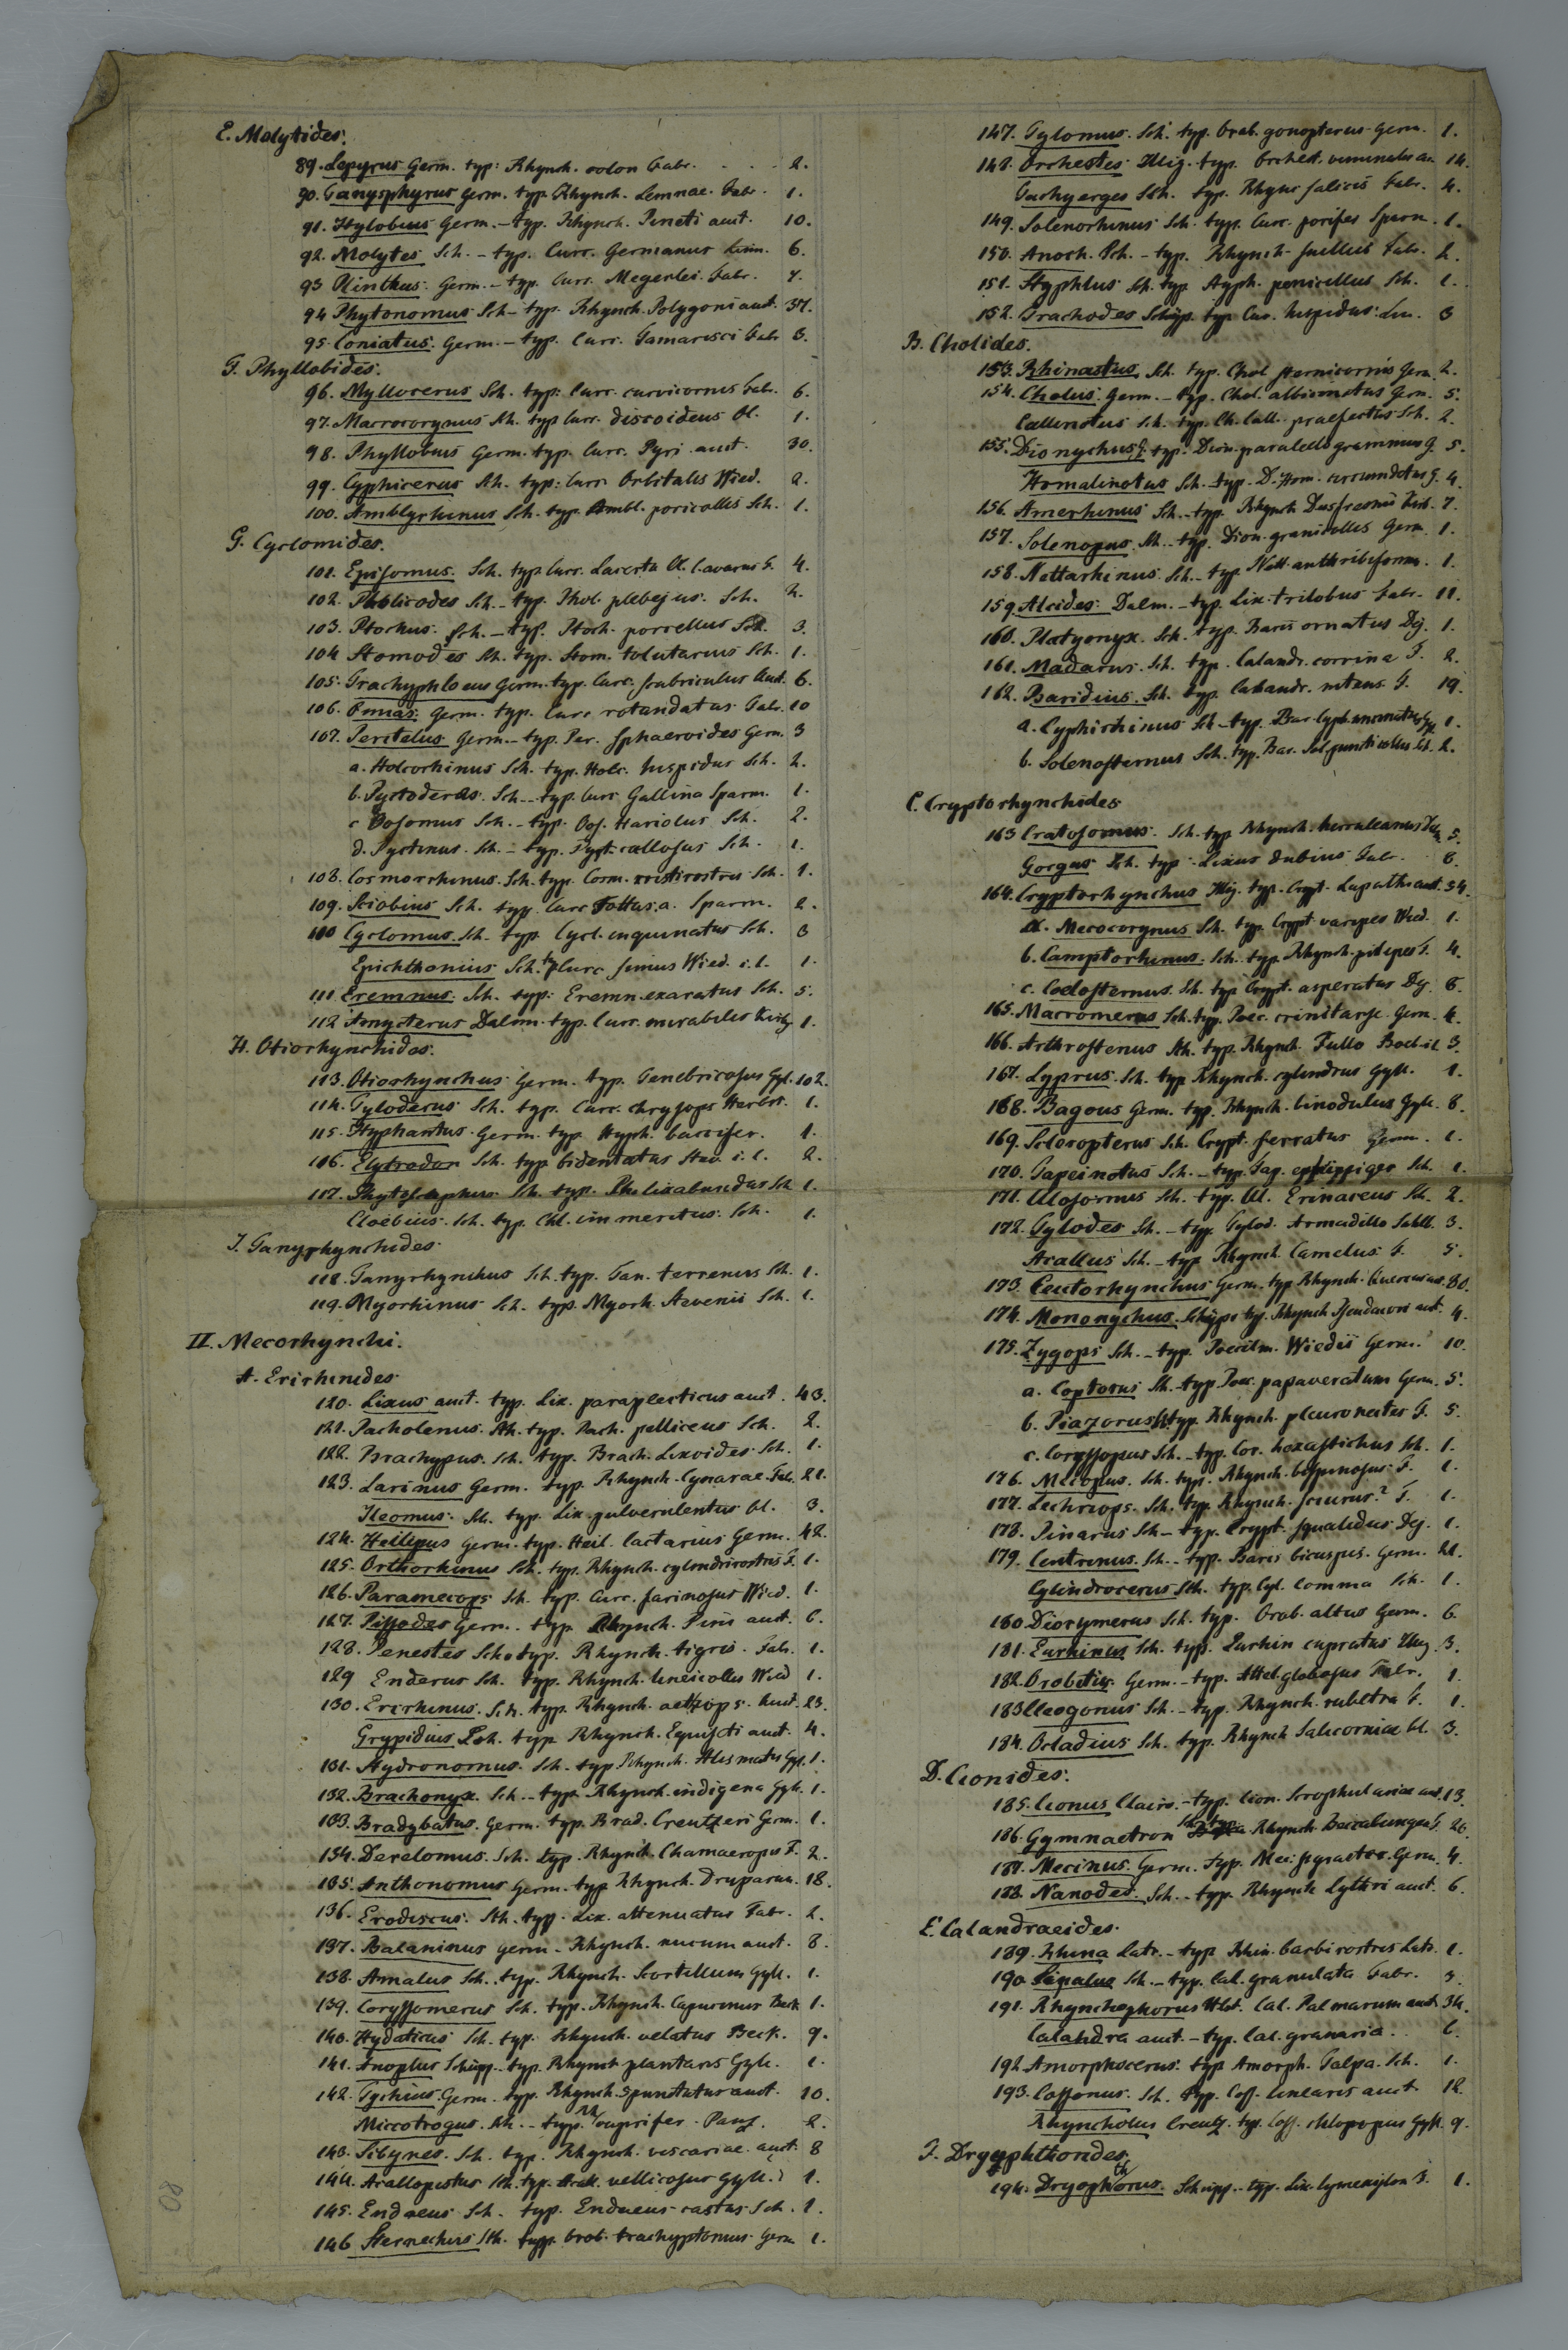 E. Molytides.
89. Lepyrus Germ. typ: Rhynch. colon Fabr. 2.
90. Tanysphyrus Germ. typ. Rhynch. Lemnae. Fabr. 1.
91. Hylobius Germ. - typ. Rhynch. Pineti auct. 10.
92. Molytes Sch. - typ. Curc. Germanus Linn. 6.
93 Plinthus. Germ. - typ. Curc. Megerlei. Fabr. 7.
94 Phytonomus Sch - typ. Rhynch. Polygoni auct. 37.
95. Coniatus. Germ. - typ. Curc. Tamarisci Fabr 3.
F. Phyllobides.
96. Myllocerus Sch. typ: Curc. curvicornis Fabr. 6.
97. Macrocorynus Sch. typ Curc. discoideus Ol. 1.
98. Phyllobius Germ. typ. Curc. Pyri auct. 30.
99. Cyphicerus Sch. typ: Curc Orbitalis Wied. 2.
100. Amblyrhinus Sch. typ. Ambl. poricollis Sch. 1.
G. Cyclomides.
101. Episomus. Sch. typ Curc. Lacerta Ol. C. avarus F. 4.
102. Pholicodes Sch. - typ. Phol. plebejus. Sch. 2.
103. Ptochus. Sch. - typ. Ptoch. porcellus Sch. 3.
104 Stomodes Sch. typ. Stom. tolutarius Sch. 1.
105. Trachyphloeus Germ. typ. Curc. scabriculus Auct. 6.
106. Omias. Germ. typ. Curc rotundatus Fabr. 10
107. Peritelus Germ. - typ. Per. sphaeroides Germ. 3
a. Holcorhinus Sch. typ. Holc. hispidus Sch. 2.
b. Pyctoderes. Sch. - typ. Curc. Gallina Sparm. 1.
c Oosomus Sch. - typ. Oos. Hariolus Sch. 2.
d. Pyctinus. Sch. - typ. Pyct. callosus Sch. 1.
108. Cosmorrhinus. Sch. typ. Cosm. cristirostris Sch. 1.
109. Sciobius Sch. typ. Curc Tottus.a. Sparm. 2.
110 Cyclomus. Sch. typ. Cycl. inquinatus Sch. 3
Epichthonius Sch. typ Curc simus Wied. i.l. 1.
111. Eremnus. Sch. typ. Eremn. exaratus Sch. 5.
112 Amycterus Dalm. typ. Curc. mirabilis Kirby 1.
H. Otiorhynchides.
113. Otiorhynchus Germ. typ. Tenebricosus Gyl. 102.
114. Tyloderus Sch. typ. Curc. chrysops Herbst. 1.
115. Hyphantus. Germ. typ Hyph. baccifer. 1.
116. Elytrodon Sch. typ bidentatus Stev. i.l. 2.
117. Phytoscaphus. Sch. typ. Ph. lixabundus Sch 1.
Cloebius. Sch. typ. Chl. immeritus. Sch. 1.
I. Tanyrhynchides.
118. Tanyrhynchus Sch. typ. Tan. terrenus Sch. 1.
119. Myorhinus Sch. typ. Myorh. Stevenii Sch. 1.
II. Mecorhynchi.
A. Erirhinides
120. Lixus auct. typ. Lix. paraplecticus auct. 43.
121. Pacholenus. Sch. typ. Pach. pelliceus Sch. 2.
122. Brachypus. Sch. typ. Brach. Lixoides Sch. 1.
123. Larinus Germ. typ. Rhynch. Cynarae. Fabr. 21.
Ileomus. Sch. typ. Lix. pulverulentus Ol. 3.
124. Heilipus Germ. typ. Heil. lactarius Germ. 42.
125. Orthorhinus Sch. typ. Rhynch. cylindrirostris F. 1.
126. Paramecops. Sch. typ. Curc. farinosus Wied. 1.
127. Pissodes Germ. typ. Rhynch. Pini auct. 6.
128. Penestes Sch. typ. Rhynch. tigris. Fabr. 1.
129 Enderus Sch. typ. Rhynch. lineicollis Wied 1.
130. Erirhinus. Sch. typ. Rhynch. aethiops. Auct. 23.
Grypidius Sch. typ. Rhynch. Equiseti auct. 4.
131. Hydronomus. Sch. typ. Rhynch. Alismatis Gyl. 1.
132. Brachonyx. Sch. - typ. Rhynch. indigena Gyll. 1.
133. Bradybatus. Germ. typ. Brad. Creutzeri Germ. 1.
134. Derelomus. Sch. typ. Rhynch. Chamaeropis F. 2.
135. Anthonomus Germ. typ Rhynch. Druparum. 18.
136. Erodiscus. Sch. typ. Lix. attenuatus Fabr. 2.
137. Balaninus Germ. Rhynch. nucum auct. 8.
138. Amalus Sch. typ. Rhynch. Scortillum Gyll. 1.
139. Coryssomerus Sch. typ. Rhynch. Capucinus Beck 1.
140. Hydaticus Sch. typ. Rhynch. velatus Beck. 9.
141. Anoplus Schüpp. typ. Rhynch plantaris Gyll. 1.
142. Tychius. Germ. typ. Rhynch. 5punctatus auct. 10.
Miccotrogus. Sch. - typ. Rh cuprifer. Panz. 2.
143. Sibynes. Sch. typ. Rhynch. viscariae. auct. 8
144. Acallopistus Sch. typ. Acall. vellicosus Gyll. 1.
145. Endaeus Sch. typ. Endaeus castus Sch. 1.
146 Sternechus Sch. typ. Orob. trachyptomus. Germ 1.
147. Tylomus. Sch. typ. Orob. gonopterus. Germ. 1.
148. Orchestes. Illig. typ. Orchest. viminalis au. 14.
Tachyerges Sch. typ. Rhync Salicis Fabr. 4.
149. Solenorhinus Sch. typ. Curc. porifer Sparm. 1.
150. Anoch. Sch. - typ. Rhynch. suillus Fabr. 2.
151. Styphlus Sch. typ Styph. penicillus Sch. 1.
152. Trachodes Schüpp. typ. Curc. hispidus. Lin. 3
B. Cholides.
153. Rhinastus. Sch. typ. Chol sternicornis Germ. 2.
154. Cholus. Germ. - typ. Chol. albicinctus Germ. 5.
Callinotus Sch. typ. Ch. Call. praefectus Sch. 2.
155. Dionychus G. typ. Dion. paralellogrammus G. 5.
Homalinotus Sch. typ. D. Hom. circumdatus G. 4.
156. Amerhinus Sch. - typ. Rhynch Dusfresnii Kirb. 7.
157. Solenopus. Sch. - typ. Dion. granicollis Germ. 1.
158. Nettarhinus. Sch. - typ Nett. anthribiformis. 1.
159. Alcides. Dalm. - typ. Lix. trilobus Fabr. 11.
160. Platyonyx. Sch. typ. Baris ornatus Dej. 1.
161. Madarus. Sch. typ. Calandr. corvina F. 2.
162. Baridius. Sch. typ. Calandr. nitens. F. 19.
a. Cyphirhinus Sch - typ. Bar. Cyph. 1.
b. Solenosternus Sch. typ. Bar. Sol. puncticollis Sch. 2.
C. Cryptorhynchides
163 Cratosomus. Sch. typ Rhynch. herculeanus 5.
Gorgus Sch. typ. Lixus dubius Fabr. 6.
164. Cryptorhynchus Illig. typ. Crypt. Lapathi auct. 54.
a. Mecocorynus Sch. typ. Crypt. varipes Wied. 1.
b. Camptorhinus. Sch. typ. Rhynch. F. 4.
c. Coelosternus. Sch. typ Crypt. asperatus Dej. 6.
165. Macromerus Sch. typ. Poec. crinitarsis. Germ. 4.
166. Arthrostenus Sch. typ. Rhynch. Fullo Boeb. i.l. 3.
167. Lyprus. Sch. typ Rhynch. cylindrus Gyll. 1.
168. Bagous Germ. typ. Rhynch. binodulus Gyll. 8.
169. Scleropterus Sch. Crypt. serratus Germ. 1.
170. Tapeinotus Sch. - typ. Tap. ephippiger Sch. 1.
171. Ulosomus Sch. typ. Ul. Erinaceus Sch. 2.
172. Tylodes Sch. - typ. Tylod. Armadillo Sahlb. 3.
Acallus Sch. - typ. Rhynch. Camelus. F. 5.
173. Ceutorhynchus Germ. typ. Rhynch. Quercus au. 80.
174. Mononychus. Schüpp. typ. Rhynch Pseudacori auct. 4.
175. Zygops Sch. - typ. Poecilm. Wiedii Germ. 10.
a. Copturus Sch. - typ. Poec. papaveratum Germ. 5.
b. Piazorus Sch. typ. Rhynch. pleuronectes F. 5.
c. Coryssopus Sch. - typ. Cor. hexastichus Sch. 1.
176. Mecopus. Sch. typ. Rhynch. bispinosus. F. 1.
177. Lechriops. Sch. typ. Rhynch. sciurus? F. 1.
178. Pinarus Sch - typ. Crypt. squalidus. Dej. 1.
179. Centrinus. Sch. - typ. Baris bicuspis. Germ. 21.
Cylindrocerus Sch. typ. Cyl. Comma Sch. 1.
180. Diorymerus Sch. typ. Orob. altus Germ. 6.
181. Eurhinus Sch. typ. Eurhin cupratus Illig. 3.
182. Orobitis. Germ. - typ. Attel. globosus Fabr. 1.
183 Cleogonus Sch. - typ. Rhynch. rubetra F. 1.
184. Ocladius Sch. typ. Rhynch Salicorniae Ol. 3.
D. Cionides.
185. Cionus Clairv. - typ. Cion. Scrophulariae auct. 13.
186. Gymnaetron Sch. typ. Rhynch. Beccabungae F. 26.
187. Mecinus. Germ. typ. Mec. pyraster. Germ. 4.
188. Nanodes. Sch. - typ. Rhynch Lythri auct. 6.
E. Calandraeides.
189. Rhina Latr. - typ. Rhin. barbirostris Latr. 1.
190. Sipalus Sch. - typ. Cal. granulata Fabr. 3.
191. Rhynchophorus Hbst. Cal. Palmarum auct. 34.
Calandra auct. - typ. Cal. granaria. 6.
192 Amorphocerus. typ Amorph. Talpa. Sch. 1.
193. Cossonus. Sch. typ. Coss. linearis auct 12.
Rhyncholus Creutz. typ. Coss. chloropus Gyll. 9.
F. Dryophthorides.
194. Dryophthorus. Schüpp. - typ. Lix. lymexylon F. 1.
80